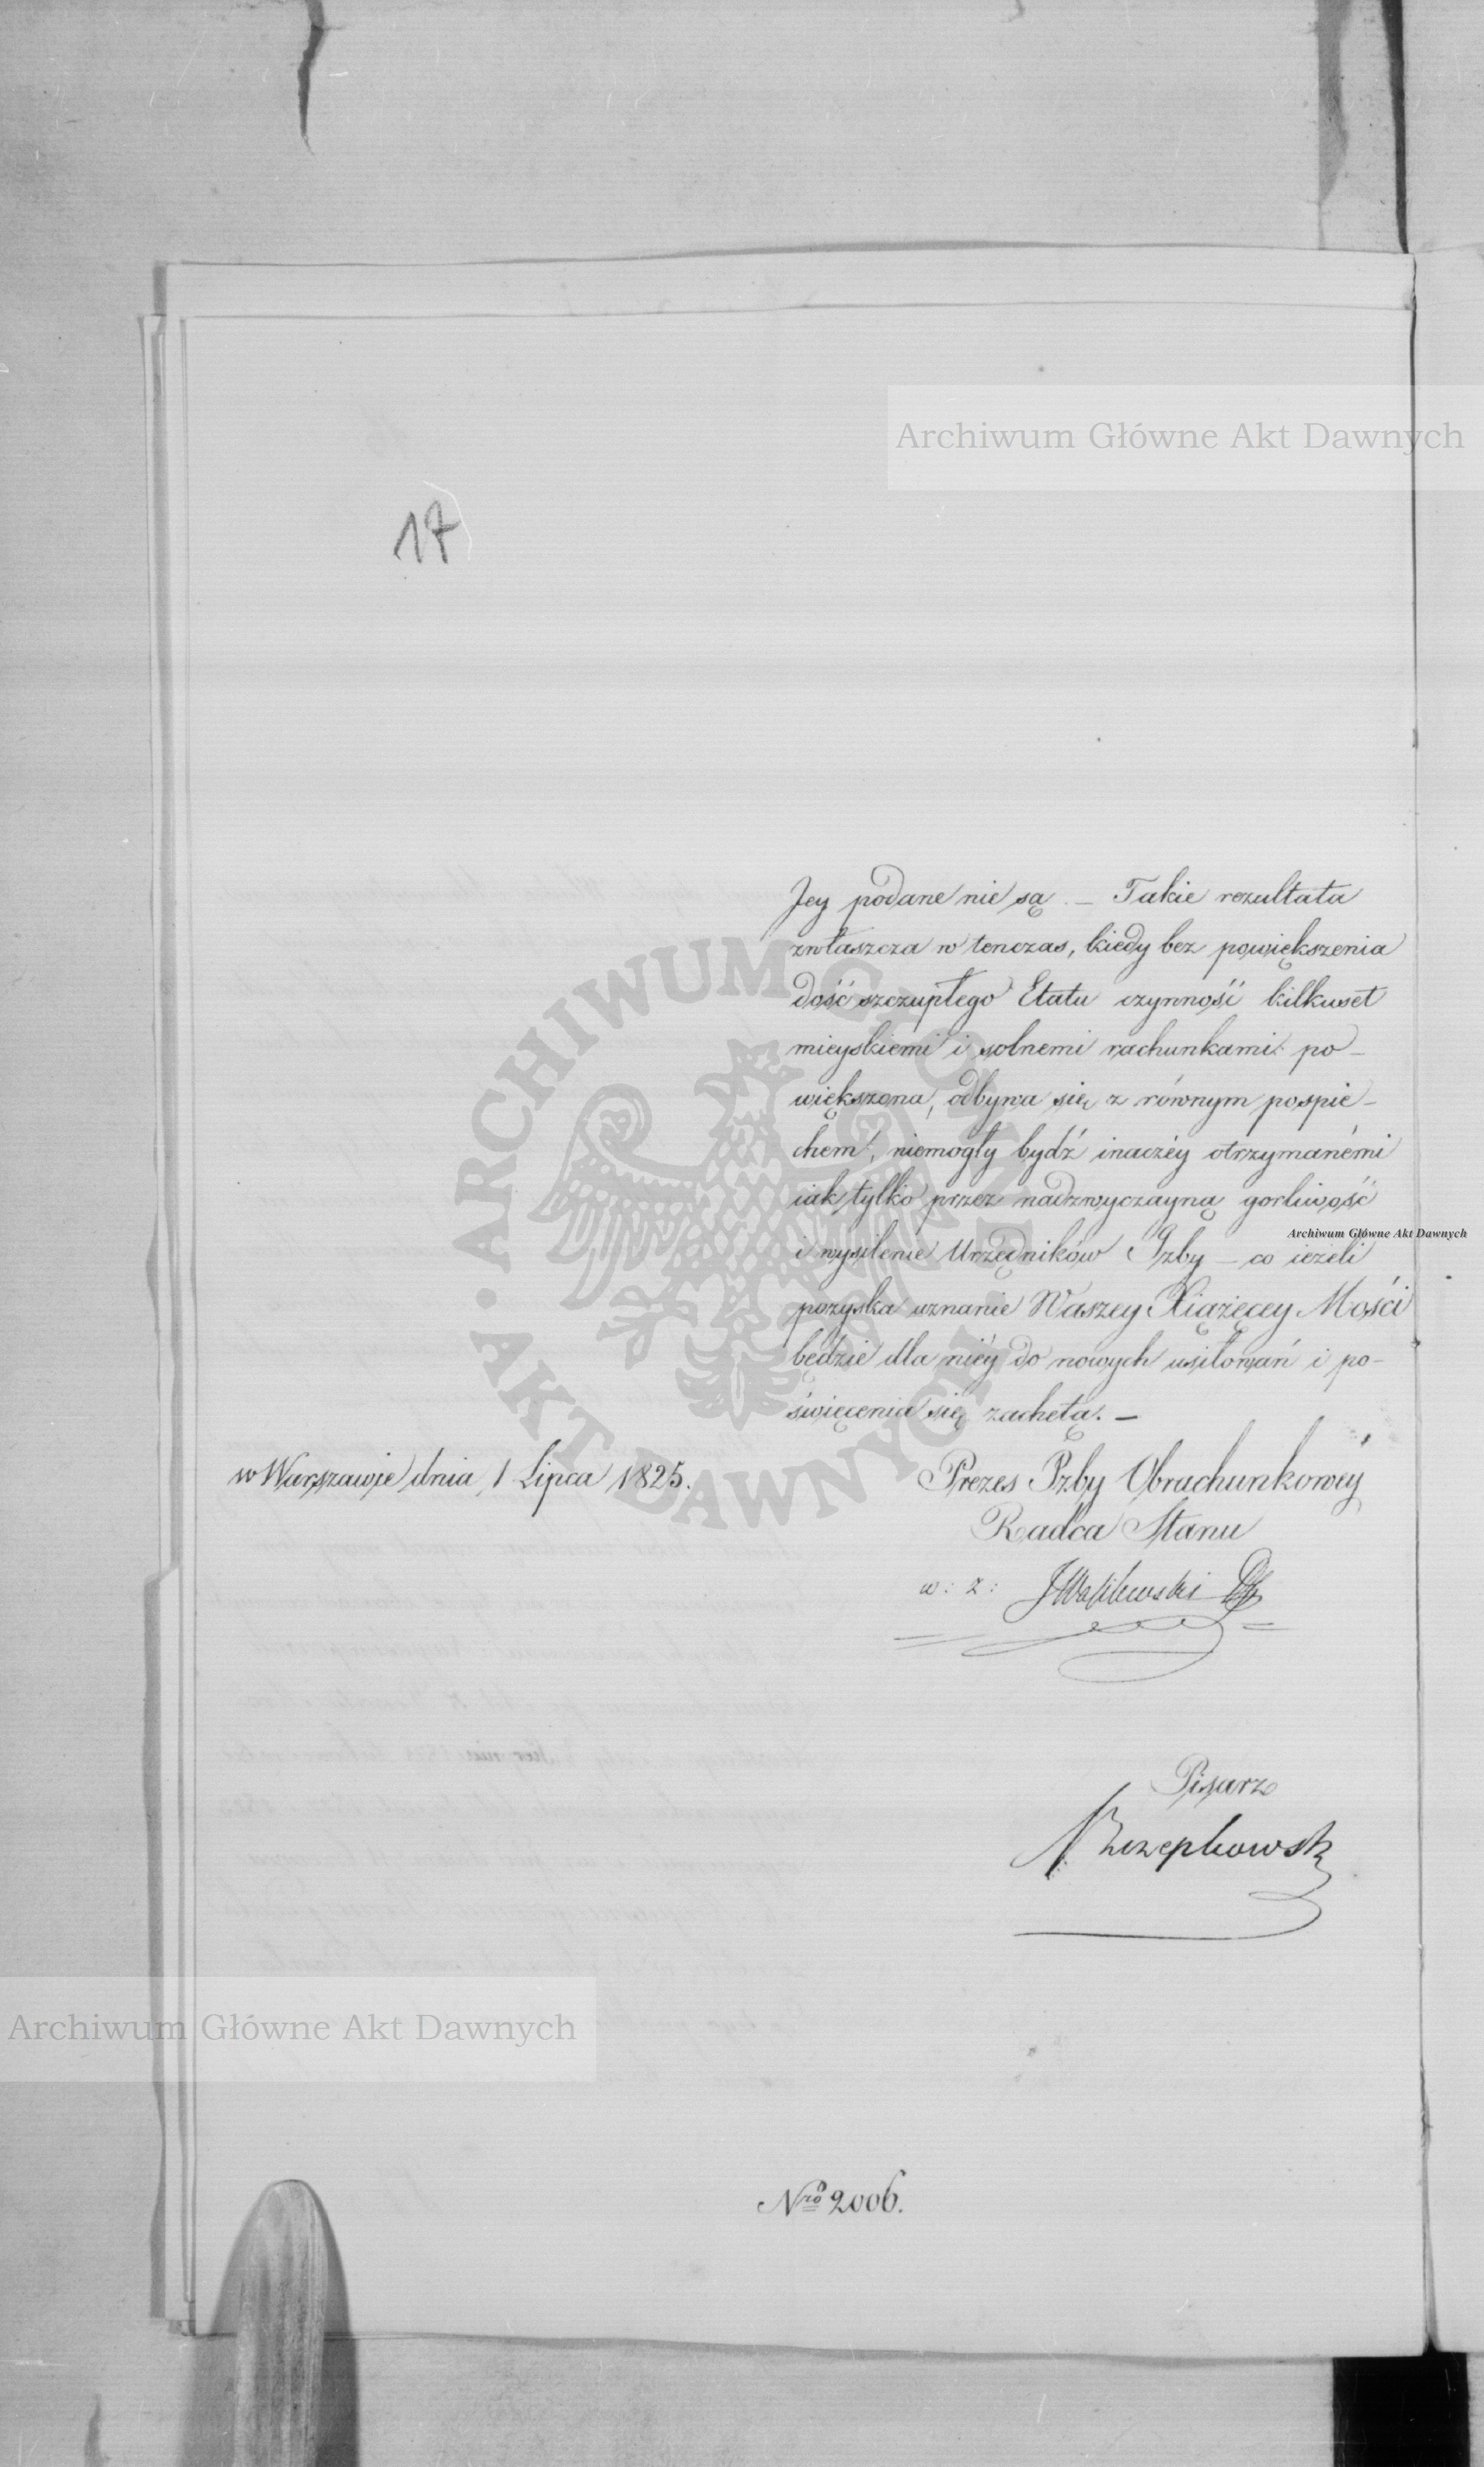 Archiwum Główne Akt Dawnych
17
Jey podane nie są. – Takie rezultata
zwłaszcza w tenczas, kiedy bez powiększenia
dość szczupłego Etatu czynność kilkuset
mieyskiemi i solnemi rachunkami po-
większona, odbywa się z równym pospie-
chem, niemogły bydź inaczéy otrzymanémi
iak tylko przez nadzwyczayną gorliwość
i wysilenie Urzędników Izby – co ieżeli
Archiwum Główne Akt Dawnych
pozyska uznanie Waszey Xiążęcey Mości
będzie dla niéy do nowych usiłowań i po-
święcenia się zachętą. –
w Warszawie dnia 1 Lipca 1825.
Prezes Izby Obrachunkowéy
Radca Stanu
w: z:
Pisarz
Archiwum Główne Akt Dawnych
Nro 2006.
ARCHIWUM GŁÓWNE • AKT DAWNYCH •